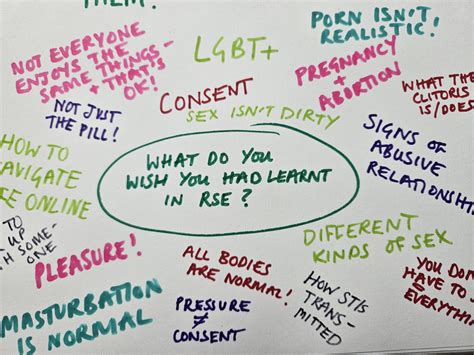 THEM!
NOT EVERYONE
ENJOYS THE
SAME THINGS -
+ THAT'S
OK!
LGBT+
PORN ISN'T
REALISTIC!
CONSENT
PREGNANCY
+
ABORTION
WHAT THE
CLITORIS
IS/DOES
NOT JUST
THE PILL!
SEX ISN'T DIRTY
SIGNS OF
ABUSIVE
RELATIONSHI
HOW TO
AVIGATE
FE ONLINE
WHAT DO YOU
WISH YOU HAD LEARNT
IN RSE?
TO
UP
H SOME-
ONE
PLEASURE!
ALL BODIES
ARE NORMAL!
DIFFERENT
KINDS OF SEX
YOU DON
HAVE TO
EVERYTHI
MASTURBATION
IS NORMAL
PRESSURE
≠
CONSENT
HOW STIS
TRANS-
MITTED